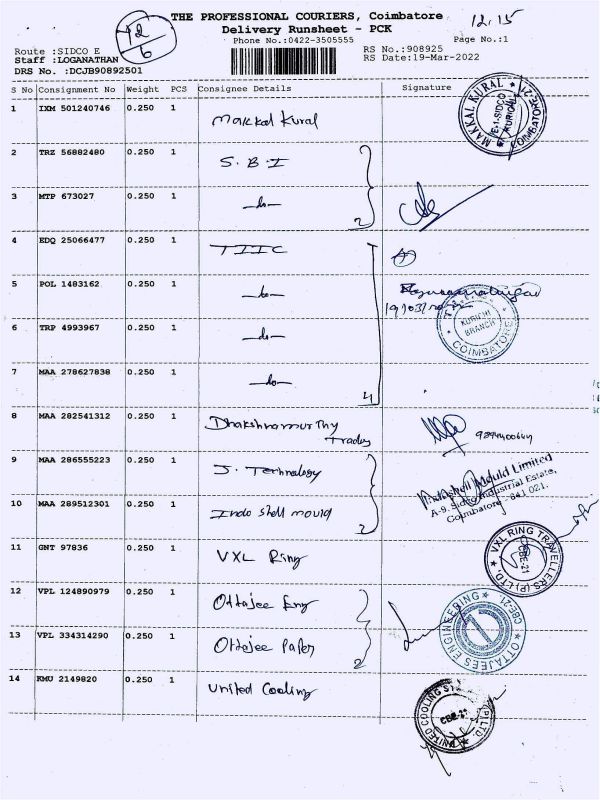 THE PROFESSIONAL COURIERS, Coimbatore
12.15
Delivery Runsheet - PCK
Phone No.:0422-3505555
Page No.:1
42
6
Route :SIDCO E
RS No.:908925
Staff :LOGANATHAN
RS Date:19-Mar-2022
DRS No. :DCJB90892501
S No Consignment No Weight PCS Consignee Details Signature
1 IXM 501240746 0.250 1 Makkal Kural
MAKKAL KURAL
E-1-SIDCO
KURICHI
COIMBATORE-21
2 TRZ 56882480 0.250 1 S.B.I
3 MTP 673027 0.250 1 —do—
2
4 EDQ 25066477 0.250 1 TIIC
5 POL 1483162 0.250 1 —do—
KURICHI
BRANCH
COIMBATORE
6 TRP 4993967 0.250 1 —do—
7 MAA 278627838 0.250 1 —do—
4
8 MAA 282541312 0.250 1 Dhakshnamurthy
Trading
9 MAA 286555223 0.250 1 J. Technology
Indoshell Mould Limited
A-9, Sidco Industrial Estate,
Coimbatore - 641 021.
10 MAA 289512301 0.250 1 Indo shell mould
2
11 GNT 97836 0.250 1 VXL Ring
VXL RING TRAVELLERS (P) LTD.
CBE-21
12 VPL 124890979 0.250 1 Ottajee Eng
OTTAJEES ENGINEERING
CBE-21.
13 VPL 334314290 0.250 1 Ottajee Paper
2
14 KMU 2149820 0.250 1 United Cooling
UNITED COOLING (P) LTD.
CBE-21